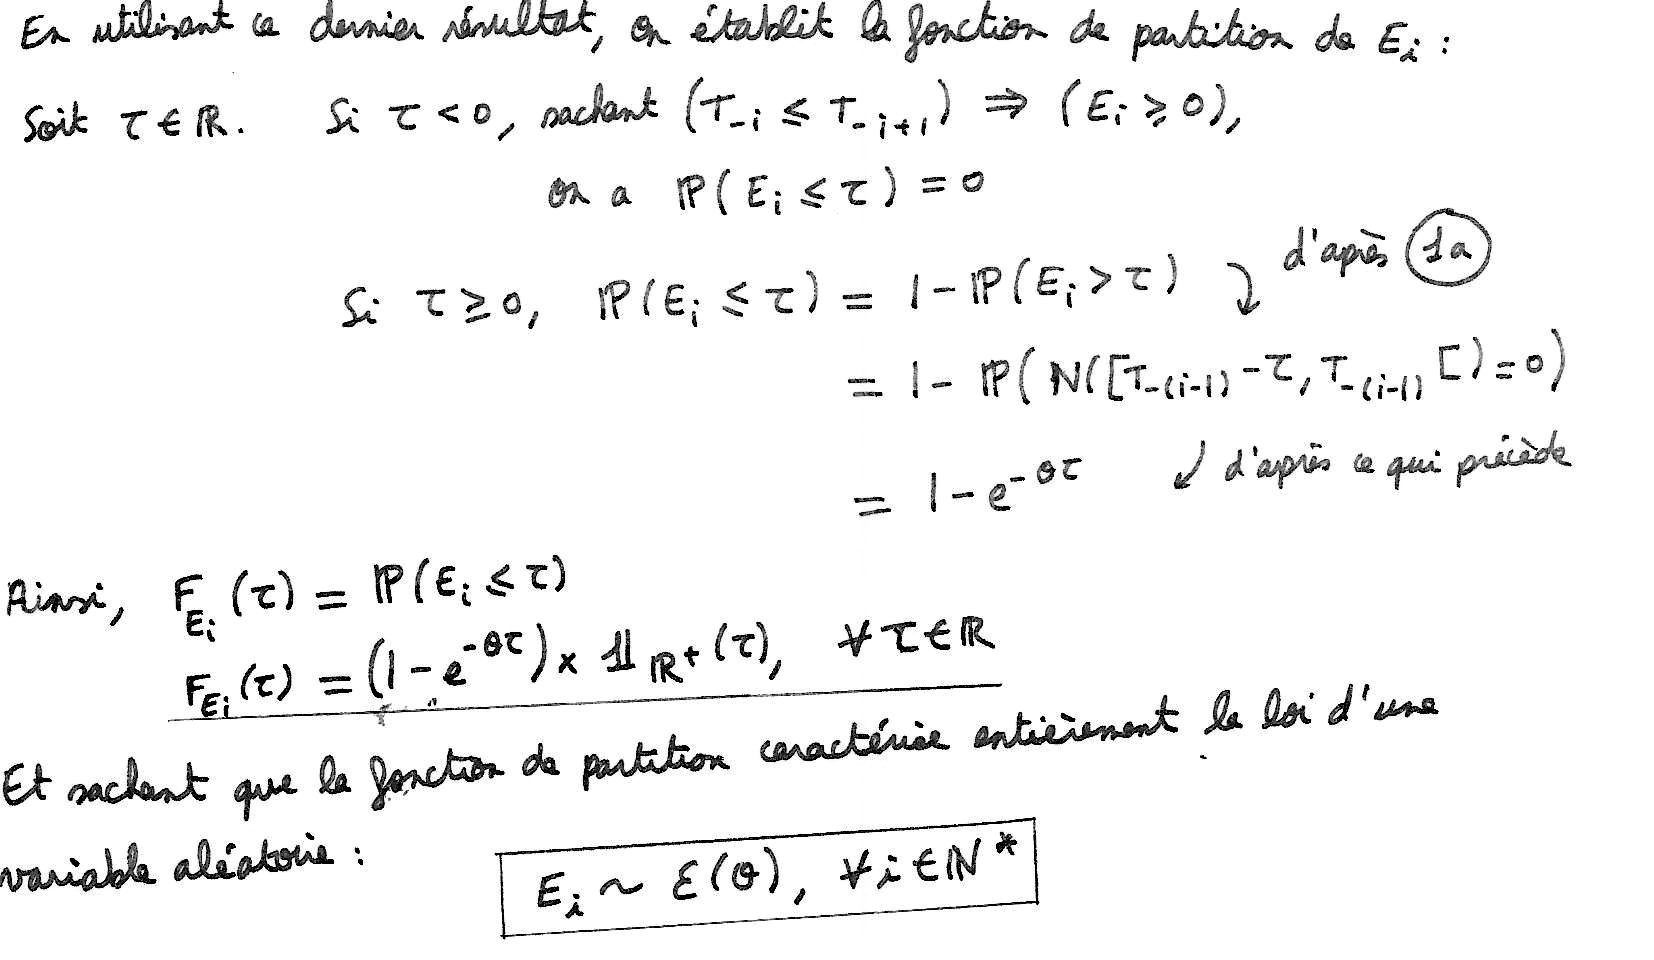 En utilisant ce dernier résultat, on établit la fonction de partition de E_i :
Soit τ ∈ ℝ. Si τ < 0, sachant (T_{-i} ≤ T_{-i+1}) ⇒ (E_i ≥ 0),
on a ℙ(E_i ≤ τ) = 0
d'après (1a)
Si τ ≥ 0, ℙ(E_i ≤ τ) = 1 - ℙ(E_i > τ)
= 1 - ℙ(N([T_{-(i-1)} - τ, T_{-(i-1)}[) = 0)
↙ d'après ce qui précède
= 1 - e^{-θτ}
Ainsi, F_{E_i}(τ) = ℙ(E_i ≤ τ)
F_{E_i}(τ) = (1 - e^{-θτ}) × 𝟙_{ℝ+}(τ), ∀ τ ∈ ℝ
Et sachant que la fonction de partition caractérise entièrement la loi d'une
variable aléatoire :
E_i ~ ℰ(θ), ∀ i ∈ ℕ*